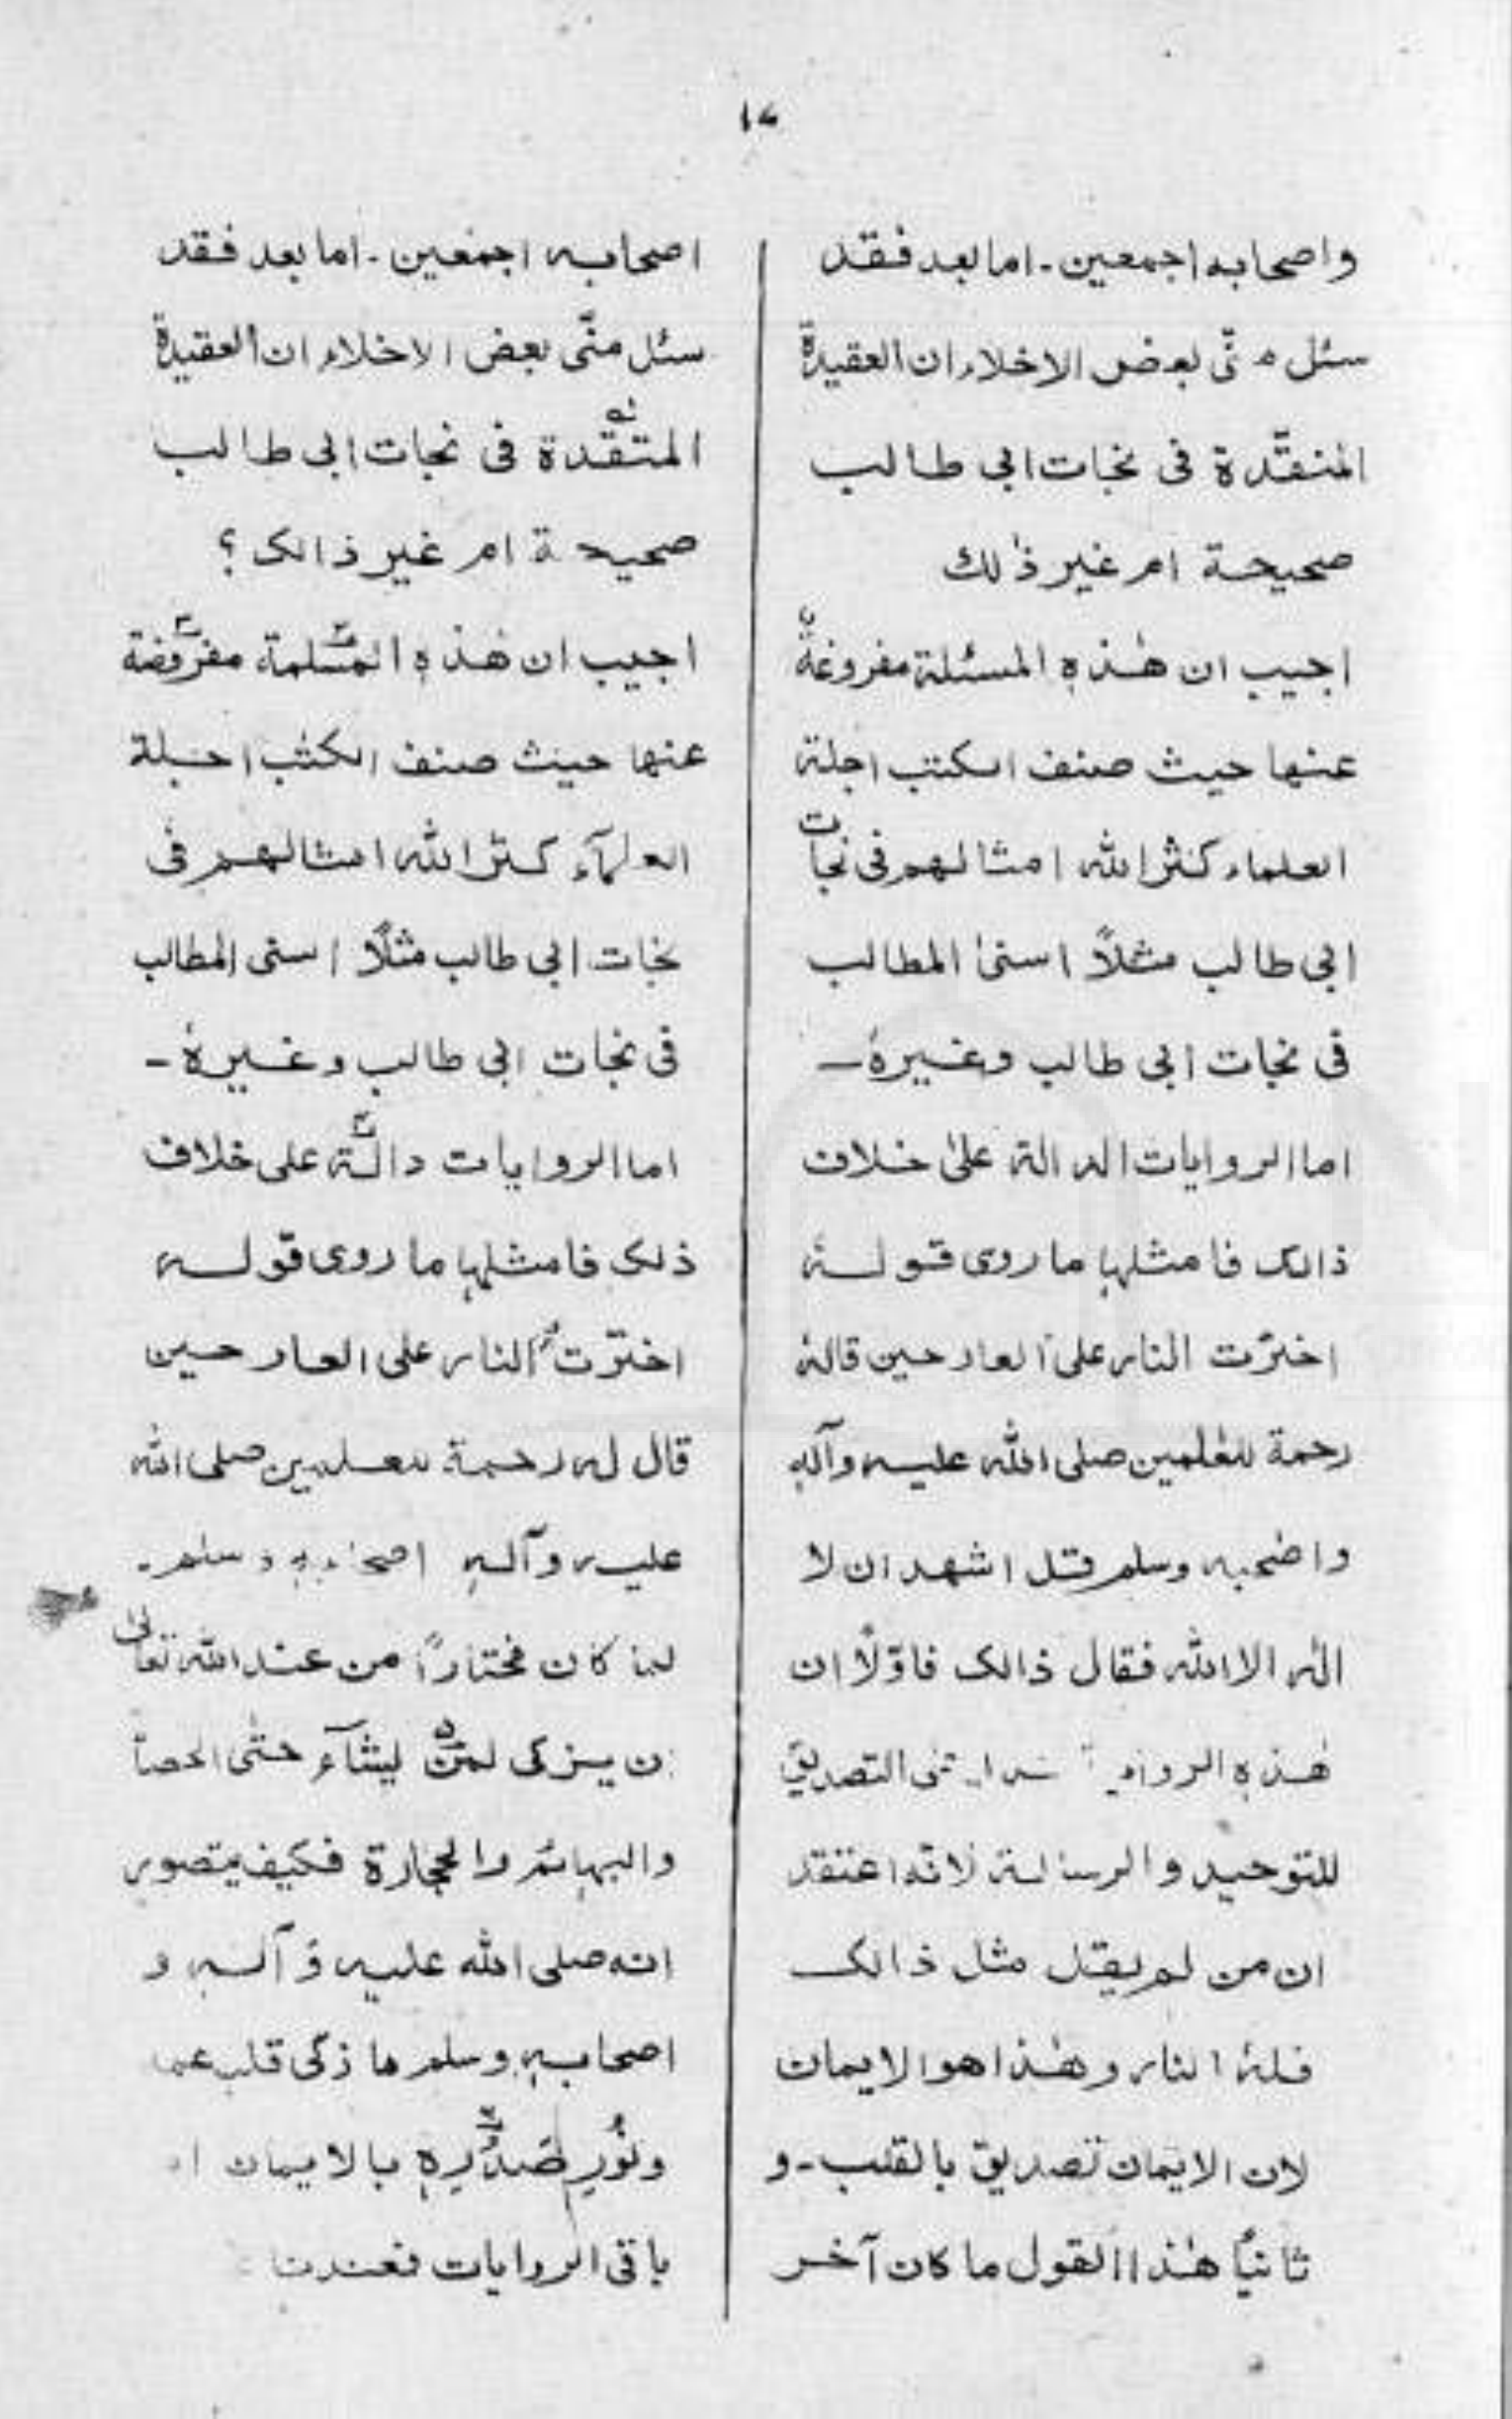 ۱۷
واصحابہ اجمعین۔ اما بعد فقد
سئل منّی بعض الاخلاء ان العقیدۃ
المنقّدۃ فی نجات ابی طالب
صحیحۃ ام غیر ذٰلك
اجیب ان ھٰذہ المسئلۃ مفروغۃً
عنھا حیث صنف الکتب اجلۃ
العلماء کثر اللہ امثالھم فی نجات
ابی طالب مثلاً اسنیٰ المطالب
فی نجات ابی طالب وغیرہٗ ۔
اما الروایات الدالۃ علیٰ خلاف
ذالک فامثلہا ما روی قولہٗ
اخترت النار علیٰ العار حین قالہٗ
رحمۃ للعٰلمین صلی اللہ علیہ وآلہٖ
واصحبہ وسلم قل اشھد ان لا
الٰہ الا اللہ فقال ذالک فاوّلًا ان
ھٰذہ التصدیق
للتوحید والرسالۃ لانہ اعتقد
ان من لم یقل مثل ذالک
فلہٗ النار وھٰذا ھو الایمان
لان الایمان تصدیق بالقلب ۔ و
ثانیًا ھٰذا القول ما کان آخر
اصحابہ اجمعین ۔ اما بعد فقد
سئل منّی بعض الاخلاء ان العقیدۃ
المتقدۃ فی نجات ابی طالب
صحیحۃ ام غیر ذالک ؟
اجیب ان ھٰذہ المسلمۃ مفروضۃ
عنھا حیث صنف الکتب اجلۃ
العلمآء کثر اللہ امثالھم فی
نجات ابی طالب مثلًا اسنی المطالب
فی نجات ابی طالب وغیرہٗ ۔
اما الروایات دالّۃ علی خلاف
ذلک فامثلہا ما روی قولہ
اخترت النار علی العار حین
قال لہ رحمۃ للعٰلمین صلی اللہ
علیہ وآلہٖ اصحابہٖ وسلم۔
لما کان مختاراً من عند اللہ تعالیٰ
ان یزکی لمن یشآء حتی الحصا
والبہائم والحجارۃ فکیف یتصور
انہ صلی اللہ علیہ وآلہ و
اصحابہٖ وسلم ما زکی قلب
ونُورِ صَدرِہٖ بالایمان
باقی الروایات فعندنا